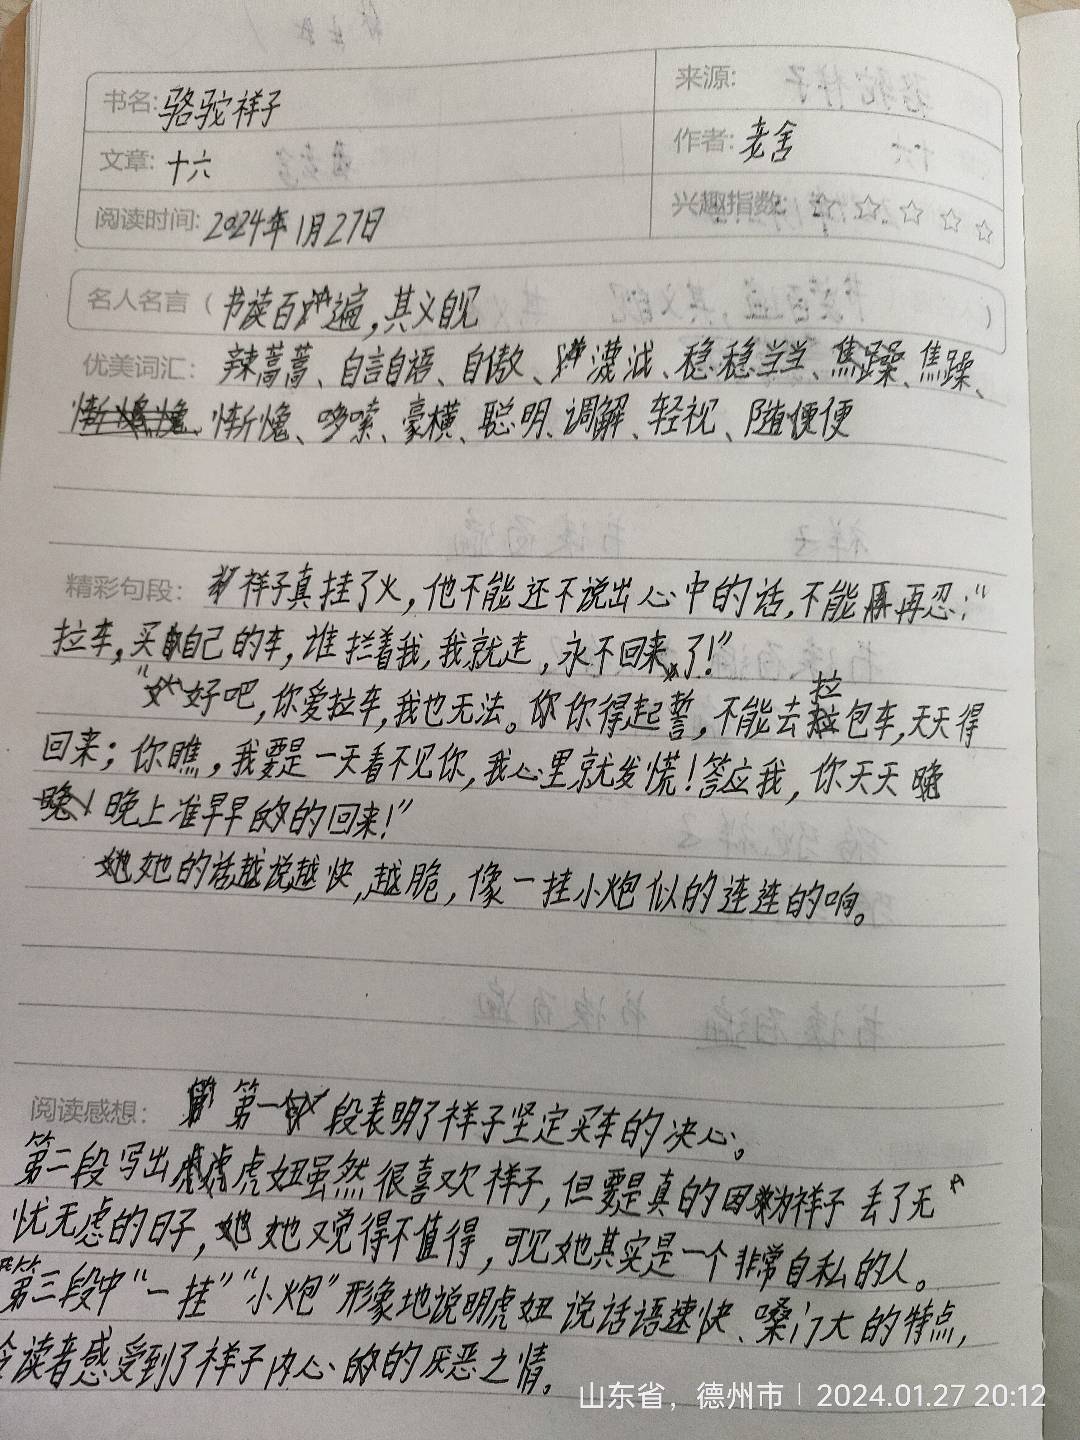 书名: 骆驼祥子
来源:
文章: 十六
作者: 老舍
阅读时间: 2024年1月27日
兴趣指数: ☆☆☆☆☆
名人名言（书读百遍,其义自见）
优美词汇: 辣蒿蒿、自言自语、自傲、稳稳当当、焦躁、焦躁、
惭愧、哆嗦、豪横、聪明、调解、轻视、随便便
精彩句段: 祥子真挂了火,他不能还不说出心中的话,不能再忍:"
拉车,买自己的车,谁拦着我,我就走,永不回来了!"
"好吧,你爱拉车,我也无法。你得起誓,不能去拉包车,天天得
回来;你瞧,我要是一天看不见你,我心里就发慌!答应我,你天天
晚上准早早的回来!"
她的话越说越快,越脆,像一挂小炮似的连连的响。
阅读感想: 第一段表明了祥子坚定买车的决心。
第二段写出虎妞虽然很喜欢祥子,但要是真的因为祥子丢了无
忧无虑的日子,她又觉得不值得,可见她其实是一个非常自私的人。
第三段中"一挂""小炮"形象地说明虎妞说话语速快、嗓门大的特点,
令读者感受到了祥子内心的厌恶之情。
山东省，德州市 | 2024.01.27 20:12